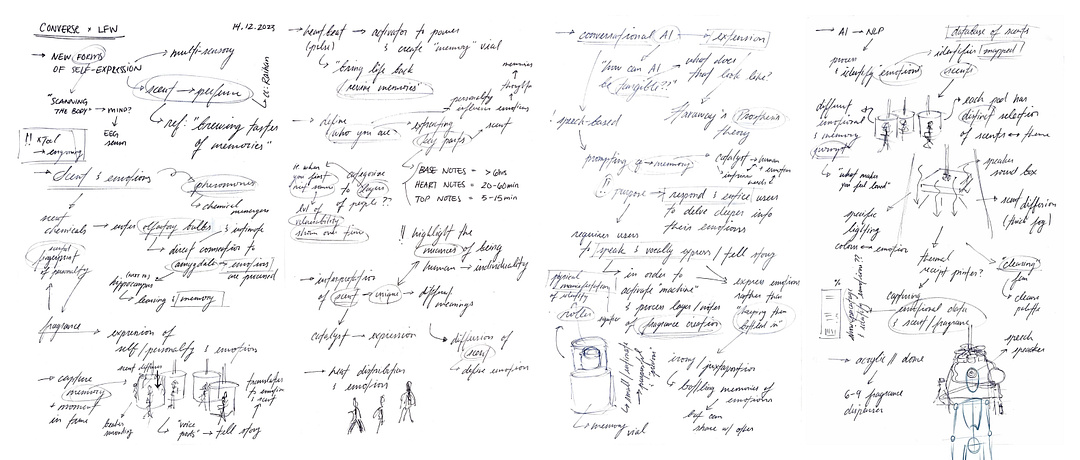 CONVERSE x LFW
14.12.2023
→ NEW FORMS
OF SELF-EXPRESSION
→ multi-sensory
scent → perfume
"SCANNING
THE BODY" → MIND?
EEG
ref: "brewing tastes
of memories"
!! xTool
→ engraving
→ Scent & emotions
pheromones
→ chemical
messengers
scent
chemicals → enter olfactory bulbs
→ direct connection to
amygdala → emotions
are processed
hippocampus
↳ learning & memory
scented
fingerprint
of personality
fragrance → expression of
self/personality & emotion
→ capture
memory
+ moment
in time
scent diffusers
"voice
pods" → tell story
translates
to emotion
& scent
→ heartbeat → activator to power
(pulse) & create "memory" vial
↳ "bring life back
revive memories"
memories
↑
thoughts
personality
influences emotions
→ define
who you are
expressing
key parts
scent
BASE NOTES = > 6hrs
HEART NOTES = 20-60min
TOP NOTES = 5-15min
categorise
layers
of people??
vulnerability
shown over time
!! highlight the
nuances of being
human → individuality
→ interpretation
of scent → unique → different
meanings
catalyst → expression
↳ diffusion of
scent
↳ define emotion
→ heat distribution
& emotion
→ conversational AI → expression
"how can AI
be tangible??"
what does
that look like?
Haraway's Prosthesis
theory
! speech-based
prompting → memory → catalyst → human
+ emotion
!! purpose → respond & entice users
to delve deeper into
their emotions
requires users
to speak & vocally express / tell story
physical
manifestation
of identity
↳ in order to
activate "machine"
& process layer/notes
of fragrance creation
→ express emotions
rather than
"keeping them
bottled in"
irony / juxtaposition
↳ bottling memories of
emotions
↳ but can
share w/ others
↳ memory
vial
→ AI → NLP
process
& identify "emotions"
database of scents
identifies mapped
scents
different
emotional
& memory
prompts
↳ "what makes
you feel loved"
→ each pod has
distinct selection
of scents → theme
speaker
sound box
→ scent diffusion
(thick fog)
specific
lighting
colour → emotion
thermal
receipt printer?
"clearing"
fan
↳ cleanse
palette
capturing
emotional data
& scent/fragrance
speech
speaker
→ acrylic // dome
6-9 fragrance
dispenser